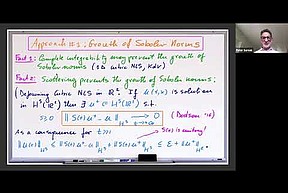 Approach #1: Growth of Sobolev Norms
Fact 1: Complete integrability may prevent the growth of
Sobolev norms (1d cubic NLS, KdV)
Fact 2: Scattering prevents the growth of Sobolev norms:
(Defocusing cubic NLS in ℝ². If u(t,x) is solution
in H^s(ℝ²) then ∃ u⁺ ∈ H^s(ℝ²) s.t.
‖ S(t)u⁺ - u ‖_{H^s} → 0 (Dodson
As a consequence for t>>1
S(t) is unitary!
‖u(t)‖_{H^s} ≤ ‖S(t)u⁺-u‖_{H^s} + ‖S(t)u⁺‖_{H^s} ≤ ε + ‖u⁺‖_{H^s}